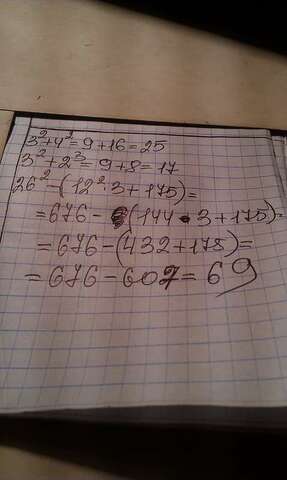 3²+4²=9+16=25
3²+2³=9+8=17
26²-(12²·3+175)=
=676-(144·3+175)=
=676-(432+178)=
=676-607=69